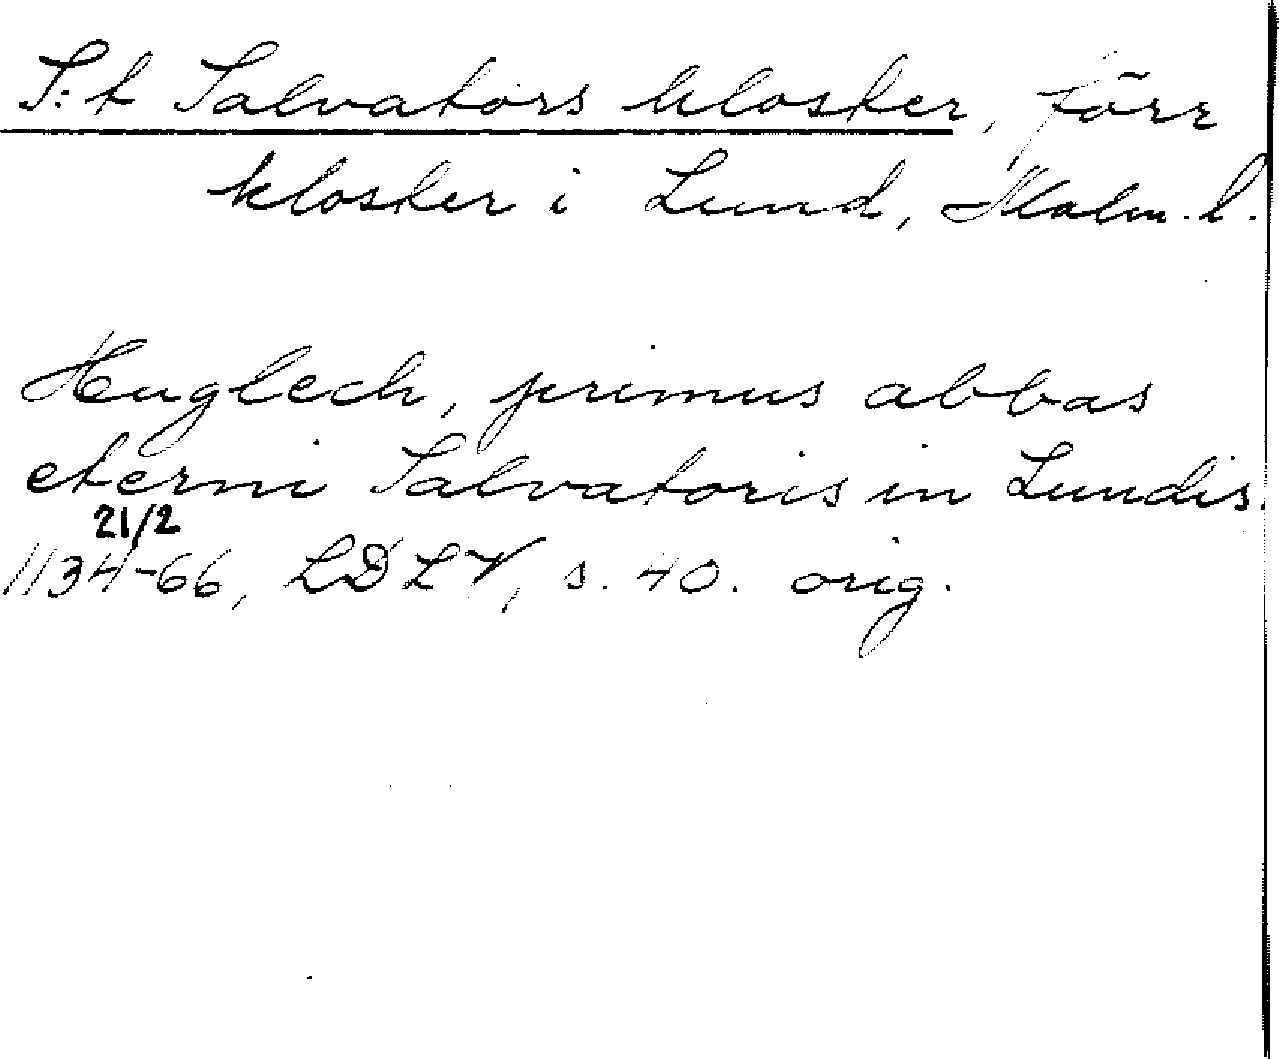 S:t Salvators kloster, förr
kloster i Lund, Malm. l.
Heuglech, primus abbas
eterni Salvatoris in Lundis.
21/2
1134-66, LDLV, s. 40. orig.